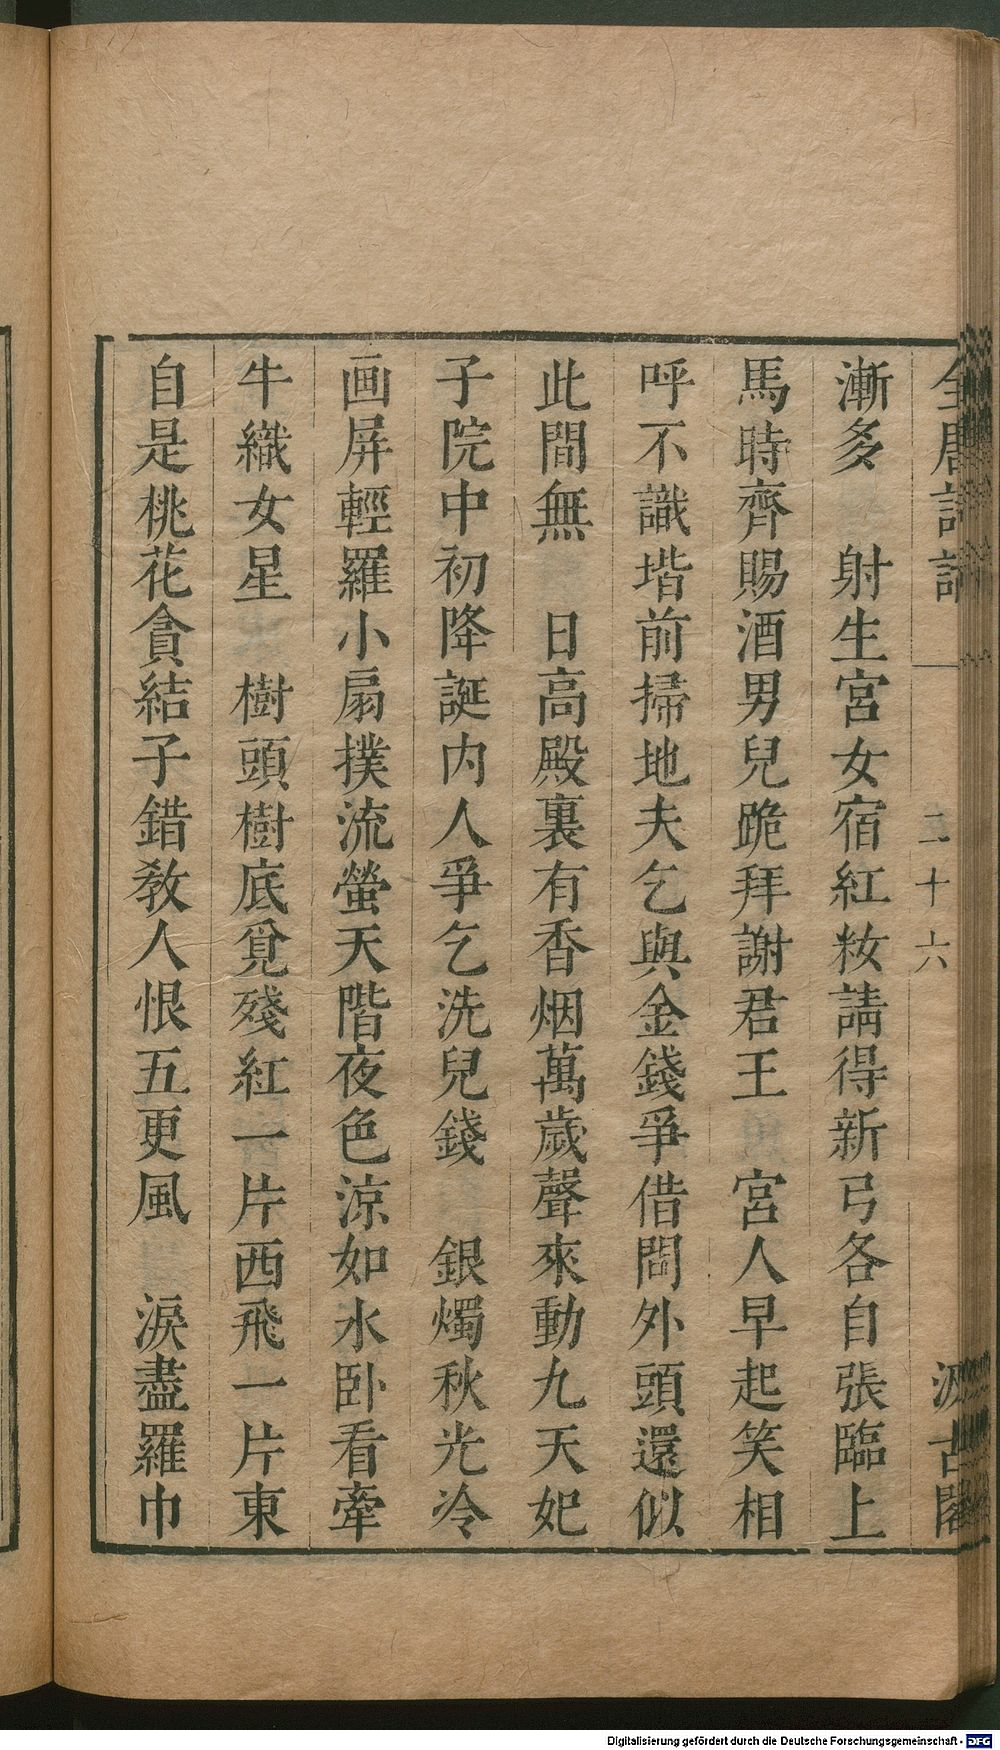 全唐詩話
二十六
汲古閣
漸多　射生宮女宿紅妝請得新弓各自張臨上
馬時齊賜酒男兒跪拜謝君王　宮人早起笑相
呼不識堦前掃地夫乞與金錢爭借問外頭還似
此間無　日高殿裏有香烟萬歲聲來動九天妃
子院中初降誕内人爭乞洗兒錢　銀燭秋光冷
画屏輕羅小扇撲流螢天階夜色涼如水卧看牽
牛織女星　樹頭樹底覓殘紅一片西飛一片東
自是桃花貪結子錯教人恨五更風　淚盡羅巾
Digitalisierung gefördert durch die Deutsche Forschungsgemeinschaft - DFG